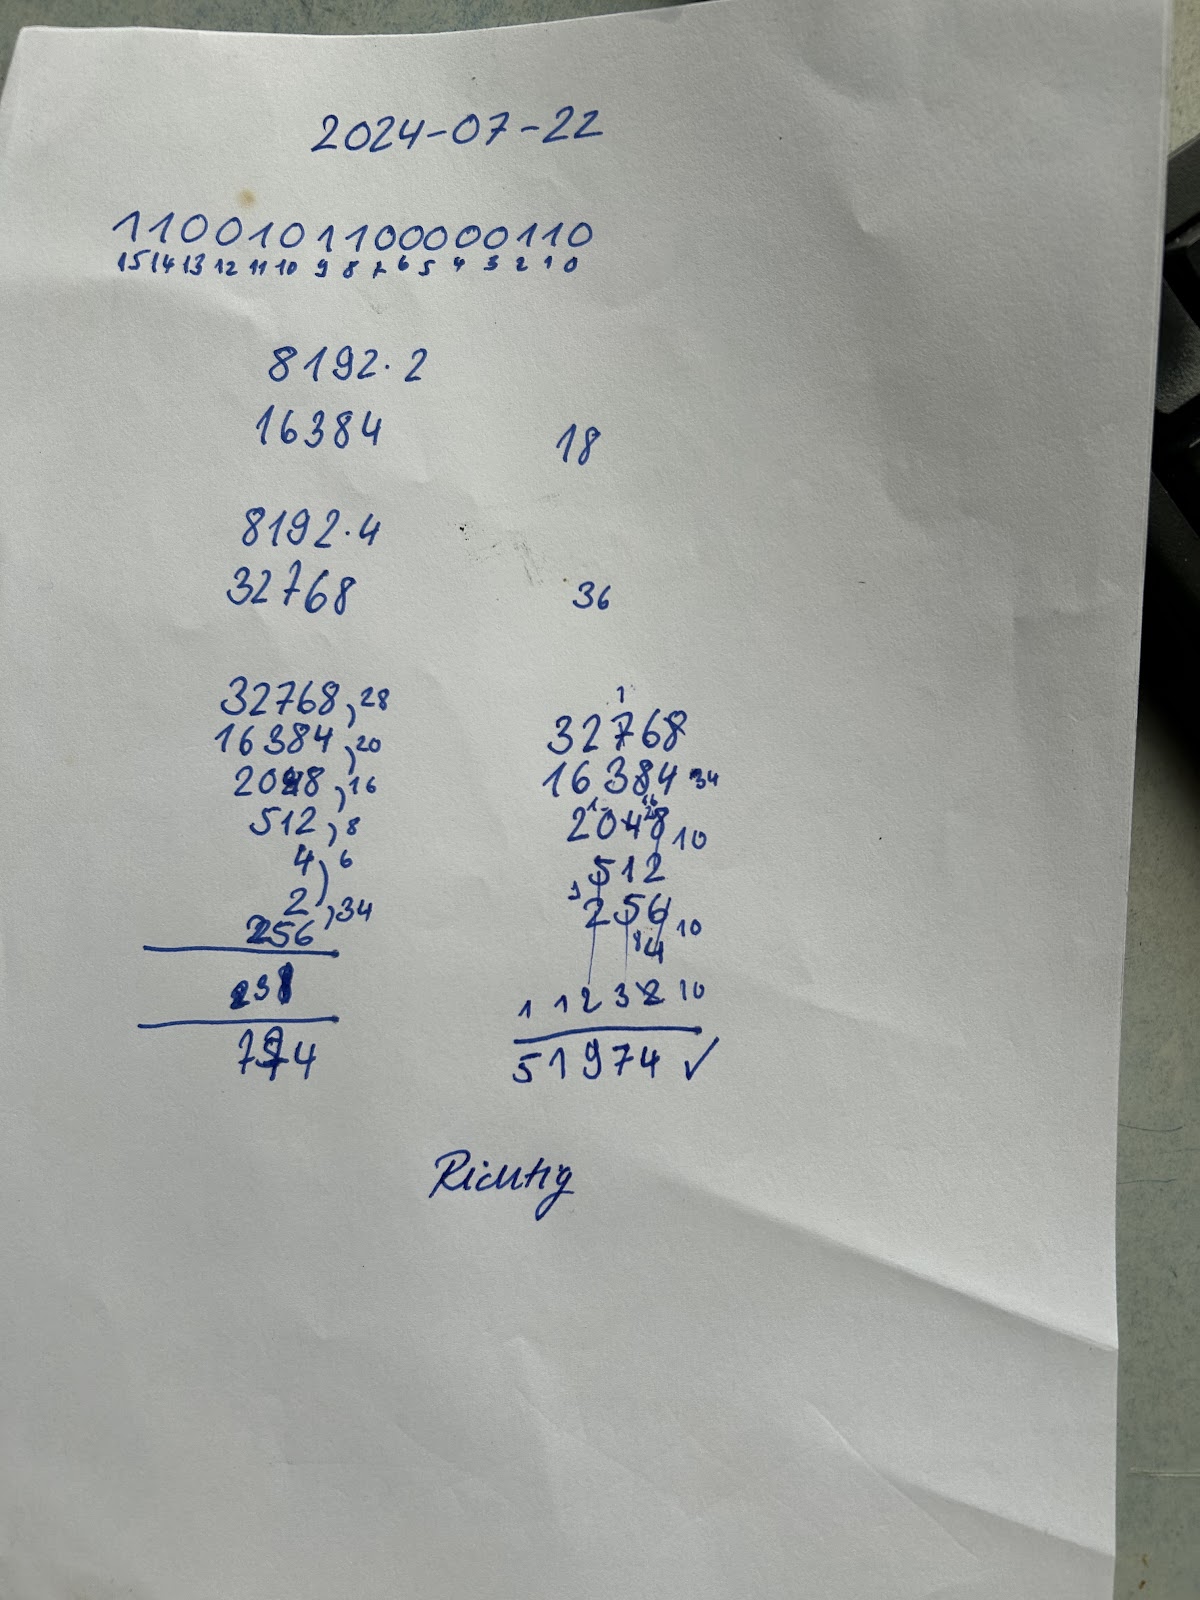 2024-07-22
1100101100000110
15 14 13 12 11 10 9 8 7 6 5 4 3 2 1 0
8192·2
16384
18
8192·4
32768
36
32768, 28
16384, 20
2048, 16
512, 8
4, 6
2, 34
256
7974
1
32768
16384 34
2048 10
512
256 10
4
1 1 2 3 2 10
51974 ✓
Richtig